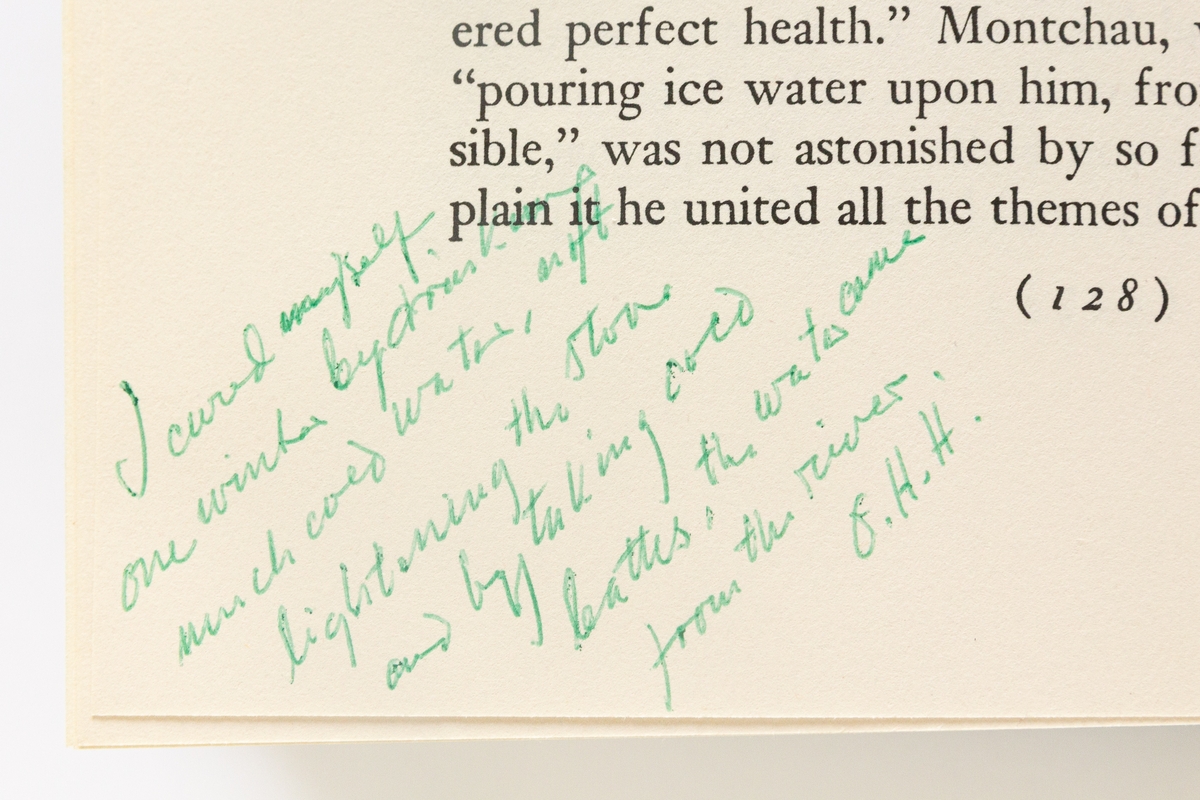 ered perfect health.” Montchau,
“pouring ice water upon him, fro
sible,” was not astonished by so f
plain it he united all the themes of
(128)
I cured myself
one winter by drinking
much cold water, not
lightening the stove
and by taking cold
baths; the water came
from the river.
E.H.H.